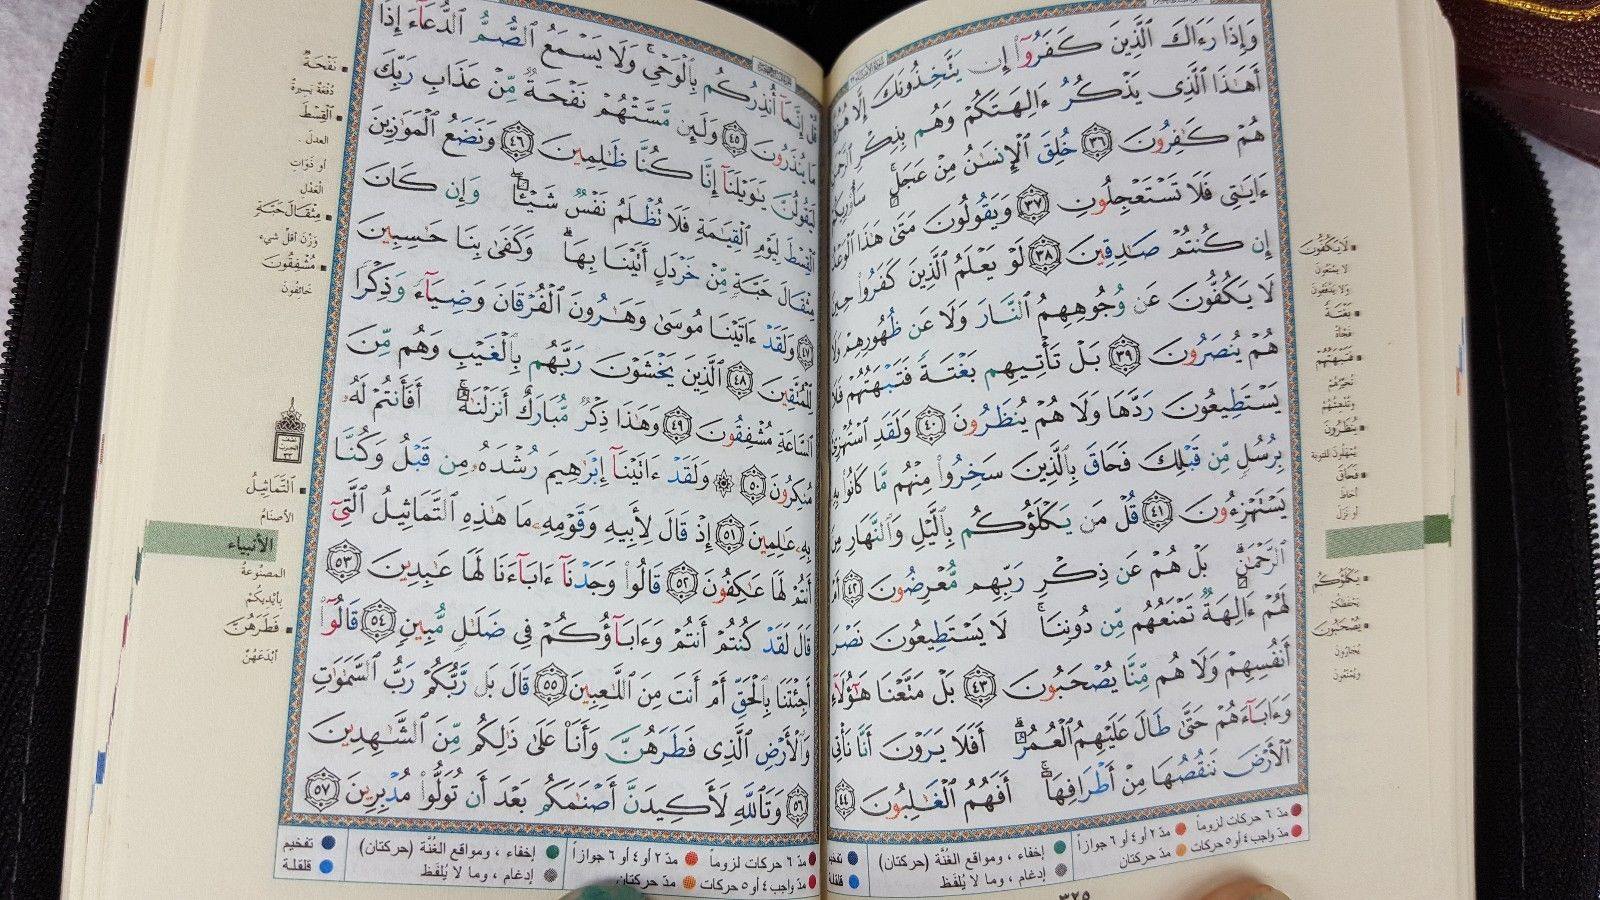 وَإِذَا رَءَاكَ ٱلَّذِينَ كَفَرُوٓا۟ إِن يَتَّخِذُونَكَ إِلَّا
أَهَٰذَا ٱلَّذِى يَذْكُرُ ءَالِهَتَكُمْ وَهُم بِذِكْرِ
هُمْ كَٰفِرُونَ ٣٦ خُلِقَ ٱلْإِنسَٰنُ مِنْ عَجَلٍۢ ۚ
ءَايَٰتِى فَلَا تَسْتَعْجِلُونِ ٣٧ وَيَقُولُونَ مَتَىٰ هَٰذَا ٱلْوَعْدُ
إِن كُنتُمْ صَٰدِقِينَ ٣٨ لَوْ يَعْلَمُ ٱلَّذِينَ كَفَرُوا۟ حِينَ
لَا يَكُفُّونَ عَن وُجُوهِهِمُ ٱلنَّارَ وَلَا عَن ظُهُورِهِمْ
هُمْ يُنصَرُونَ ٣٩ بَلْ تَأْتِيهِم بَغْتَةًۭ فَتَبْهَتُهُمْ
يَسْتَطِيعُونَ رَدَّهَا وَلَا هُمْ يُنظَرُونَ ٤٠ وَلَقَدِ ٱسْتُهْزِئَ
بِرُسُلٍۢ مِّن قَبْلِكَ فَحَاقَ بِٱلَّذِينَ سَخِرُوا۟ مِنْهُم مَّا كَانُوا۟ بِهِۦ
يَسْتَهْزِءُونَ ٤١ قُلْ مَن يَكْلَؤُكُم بِٱلَّيْلِ وَٱلنَّهَارِ مِنَ
ٱلرَّحْمَٰنِ ۗ بَلْ هُمْ عَن ذِكْرِ رَبِّهِم مُّعْرِضُونَ ٤٢ أَمْ
لَهُمْ ءَالِهَةٌۭ تَمْنَعُهُم مِّن دُونِنَا ۚ لَا يَسْتَطِيعُونَ نَصْرَ
أَنفُسِهِمْ وَلَا هُم مِّنَّا يُصْحَبُونَ ٤٣ بَلْ مَتَّعْنَا هَٰٓؤُلَآءِ
وَءَابَآءَهُمْ حَتَّىٰ طَالَ عَلَيْهِمُ ٱلْعُمُرُ ۗ أَفَلَا يَرَوْنَ أَنَّا نَأْتِى
ٱلْأَرْضَ نَنقُصُهَا مِنْ أَطْرَافِهَآ ۚ أَفَهُمُ ٱلْغَٰلِبُونَ ٤٤
لَا يَكُفُّونَ
لا يمنعون
ولا يدفعون
بَغْتَةً
فجأة
فَتَبْهَتُهُمْ
تحيرهم
وتدهشهم
يُنظَرُونَ
يمهلون للتوبة
فَحَاقَ
أحاط
أو نزل
يَكْلَؤُكُم
يحفظكم
يُصْحَبُونَ
يجارون
ويمنعون
مدّ ٦ حركات لزوماً
مدّ ٢ أو ٤ أو ٦ جوازاً
مدّ واجب ٤ أو ٥ حركات
مدّ حركتان
إخفاء ، ومواقع الغُنَّة (حركتان)
إدغام ، وما لا يُلفَظ
تفخيم
قلقلة
٣٢٥
قُلْ إِنَّمَآ أُنذِرُكُم بِٱلْوَحْىِ ۚ وَلَا يَسْمَعُ ٱلصُّمُّ ٱلدُّعَآءَ إِذَا
مَا يُنذَرُونَ ٤٥ وَلَئِن مَّسَّتْهُمْ نَفْحَةٌۭ مِّنْ عَذَابِ رَبِّكَ
لَيَقُولُنَّ يَٰوَيْلَنَآ إِنَّا كُنَّا ظَٰلِمِينَ ٤٦ وَنَضَعُ ٱلْمَوَٰزِينَ
ٱلْقِسْطَ لِيَوْمِ ٱلْقِيَٰمَةِ فَلَا تُظْلَمُ نَفْسٌۭ شَيْـًۭٔا ۖ وَإِن كَانَ
مِثْقَالَ حَبَّةٍۢ مِّنْ خَرْدَلٍ أَتَيْنَا بِهَا ۗ وَكَفَىٰ بِنَا حَٰسِبِينَ
٤٧ وَلَقَدْ ءَاتَيْنَا مُوسَىٰ وَهَٰرُونَ ٱلْفُرْقَانَ وَضِيَآءًۭ وَذِكْرًۭا
لِّلْمُتَّقِينَ ٤٨ ٱلَّذِينَ يَخْشَوْنَ رَبَّهُم بِٱلْغَيْبِ وَهُم مِّنَ
ٱلسَّاعَةِ مُشْفِقُونَ ٤٩ وَهَٰذَا ذِكْرٌۭ مُّبَارَكٌ أَنزَلْنَٰهُ ۚ أَفَأَنتُمْ لَهُۥ
مُنكِرُونَ ٥٠ ۞ وَلَقَدْ ءَاتَيْنَآ إِبْرَٰهِيمَ رُشْدَهُۥ مِن قَبْلُ وَكُنَّا
بِهِۦ عَٰلِمِينَ ٥١ إِذْ قَالَ لِأَبِيهِ وَقَوْمِهِۦ مَا هَٰذِهِ ٱلتَّمَاثِيلُ ٱلَّتِىٓ
أَنتُمْ لَهَا عَٰكِفُونَ ٥٢ قَالُوا۟ وَجَدْنَآ ءَابَآءَنَا لَهَا عَٰبِدِينَ ٥٣
قَالَ لَقَدْ كُنتُمْ أَنتُمْ وَءَابَآؤُكُمْ فِى ضَلَٰلٍۢ مُّبِينٍۢ ٥٤ قَالُوٓا۟
أَجِئْتَنَا بِٱلْحَقِّ أَمْ أَنتَ مِنَ ٱللَّٰعِبِينَ ٥٥ قَالَ بَل رَّبُّكُمْ رَبُّ ٱلسَّمَٰوَٰتِ
وَٱلْأَرْضِ ٱلَّذِى فَطَرَهُنَّ وَأَنَا۠ عَلَىٰ ذَٰلِكُم مِّنَ ٱلشَّٰهِدِينَ
٥٦ وَتَٱللَّهِ لَأَكِيدَنَّ أَصْنَٰمَكُم بَعْدَ أَن تُوَلُّوا۟ مُدْبِرِينَ ٥٧
نَفْحَةٌ
دفعة يسيرة
ٱلْقِسْطَ
العدل .
أو ذوات
العدل
مِثْقَالَ حَبَّةٍ
وزن أقل شيء
مُشْفِقُونَ
خائفون
ٱلتَّمَاثِيلُ
الأصنام
الأنبياء
المصنوعة
بأيديكم
فَطَرَهُنَّ
أبدعهن
مدّ ٦ حركات لزوماً
مدّ ٢ أو ٤ أو ٦ جوازاً
مدّ واجب ٤ أو ٥ حركات
مدّ حركتان
إخفاء ، ومواقع الغُنَّة (حركتان)
إدغام ، وما لا يُلفَظ
تفخيم
قلقلة